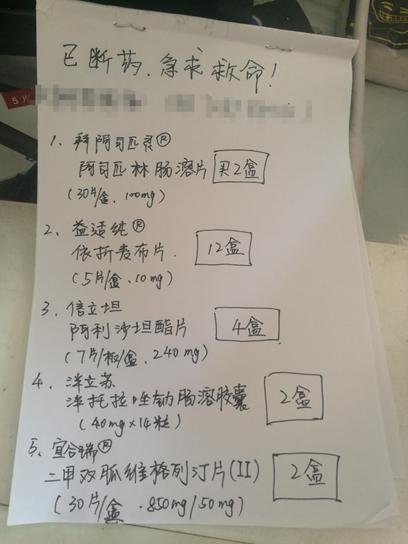 已断药，急求救命！
1、拜阿司匹灵®
阿司匹林肠溶片 买2盒
(30片/盒、100mg)
2、益适纯®
依折麦布片. 12盒
(5片/盒、10mg)
3、信立坦
阿利沙坦酯片 4盒
(7片/板/盒、240mg)
4、泮立苏
泮托拉唑钠肠溶胶囊 2盒
(40mg×14粒)
5、宜合瑞®
二甲双胍维格列汀片(II) 2盒
(30片/盒.850mg/50mg)